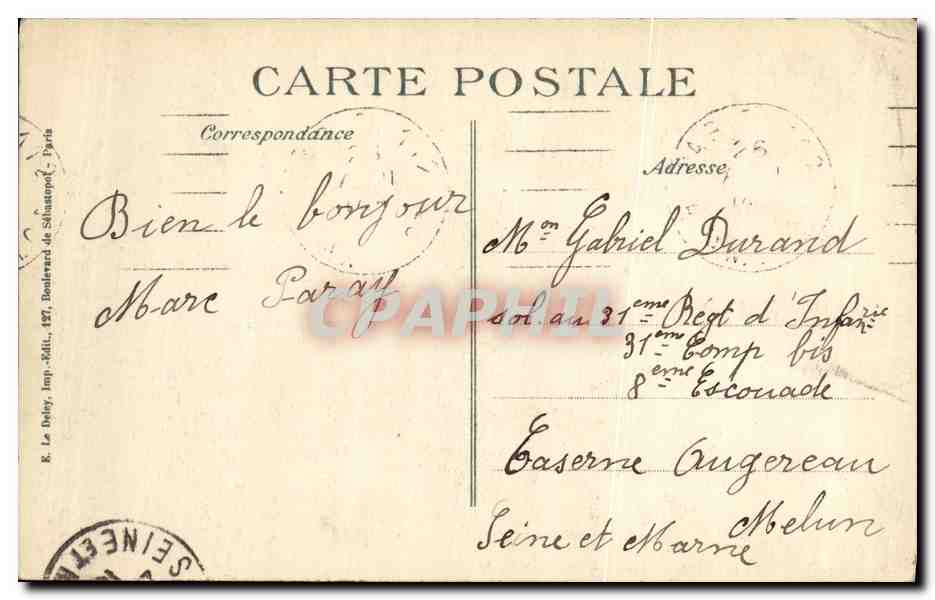 CARTE POSTALE
Correspondance
Adresse
Bien le bonjour
Marc Paray
Mon Gabriel Durand
sol. au 31eme Régt d'Infanrie
31eme Comp bis
8eme Escouade
Caserne Augereau
Melun
Seine et Marne
E. Le Deley, Imp.-Edit., 127, Boulevard de Sébastopol - Paris
CPAPHIL
SEINE ET M